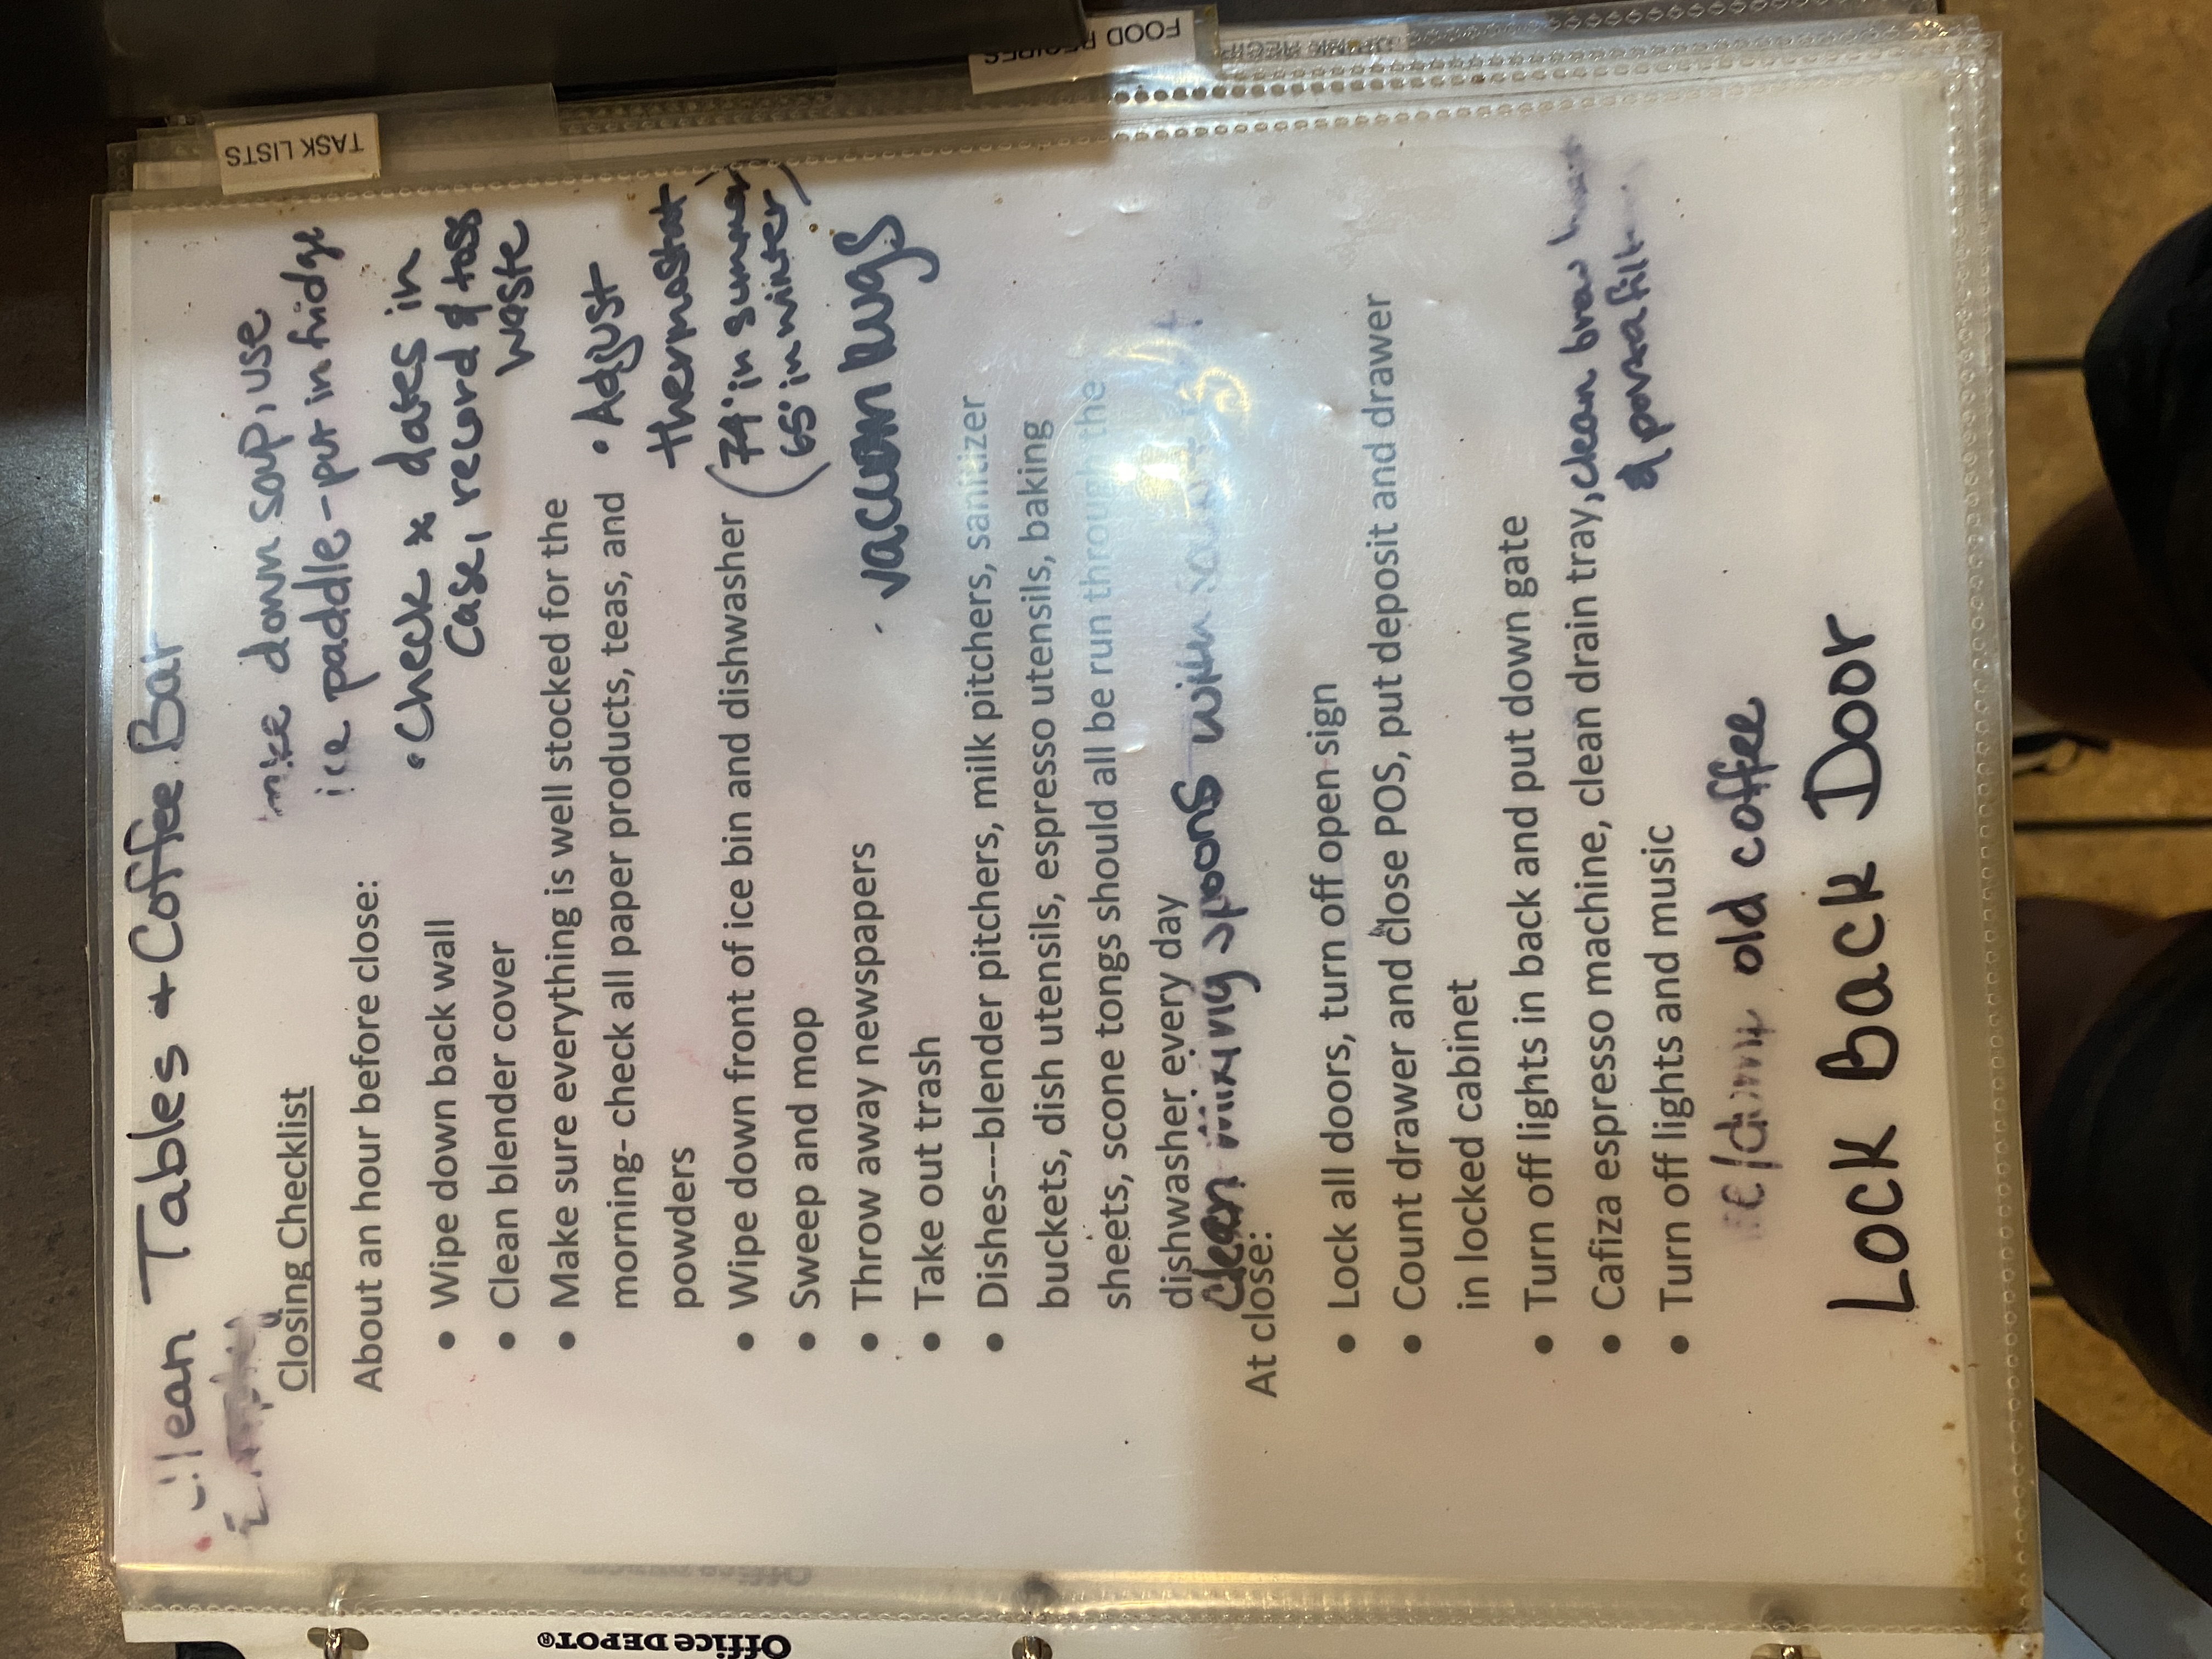 TASK LISTS
FOOD RECIPES
Clean Tables + Coffee Bar
Closing Checklist
down soup, use
ice paddle - put in fridge
About an hour before close:
• Check * dates in
case, record & toss
waste
• Wipe down back wall
• Clean blender cover
• Make sure everything is well stocked for the
morning- check all paper products, teas, and
powders
• Adjust
thermostat
(74° in summer)
(65° in winter)
• Wipe down front of ice bin and dishwasher
• Sweep and mop
• Throw away newspapers
• vacuum rugs
• Take out trash
• Dishes---blender pitchers, milk pitchers, sanitizer
buckets, dish utensils, espresso utensils, baking
sheets, scone tongs should all be run through the
dishwasher every day
Clean mixing spoons with
At close:
• Lock all doors, turn off open sign
• Count drawer and close POS, put deposit and drawer
in locked cabinet
• Turn off lights in back and put down gate
• Cafiza espresso machine, clean drain tray, clean
&
• Turn off lights and music
old coffee
Lock Back Door
Office DEPOT®